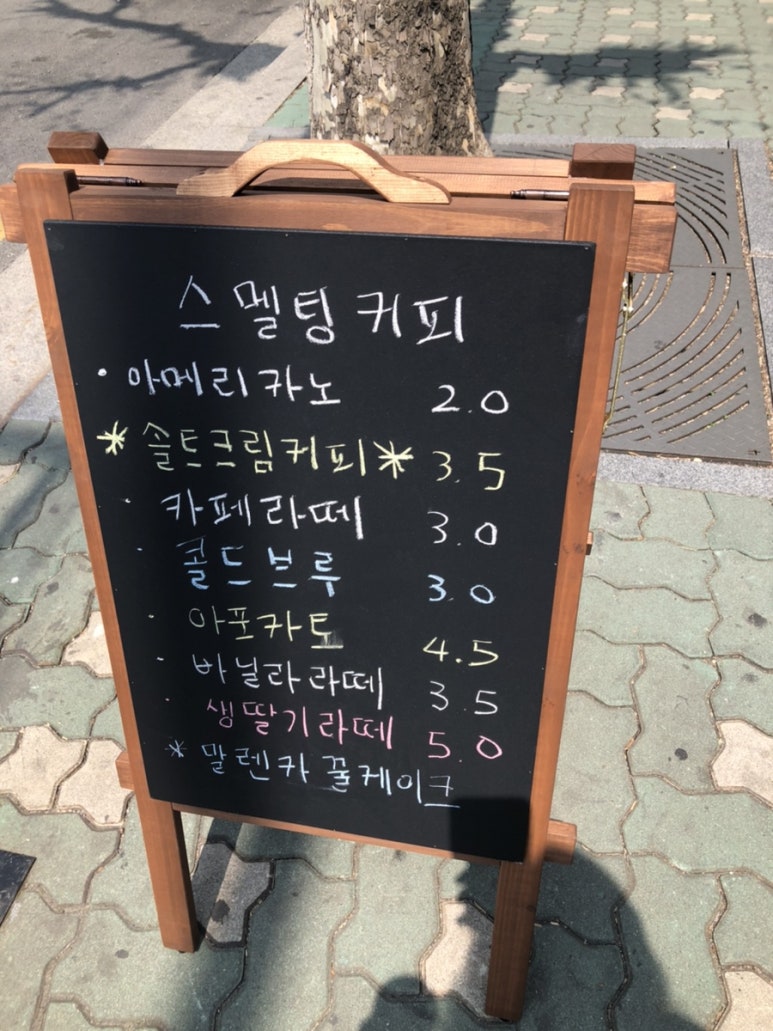 스멜팅커피
· 아메리카노 2.0
* 솔트크림커피 * 3.5
· 카페라떼 3.0
· 콜드브루 3.0
· 아포카토 4.5
· 바닐라라떼 3.5
· 생딸기라떼 5.0
* 말렌카꿀케이크